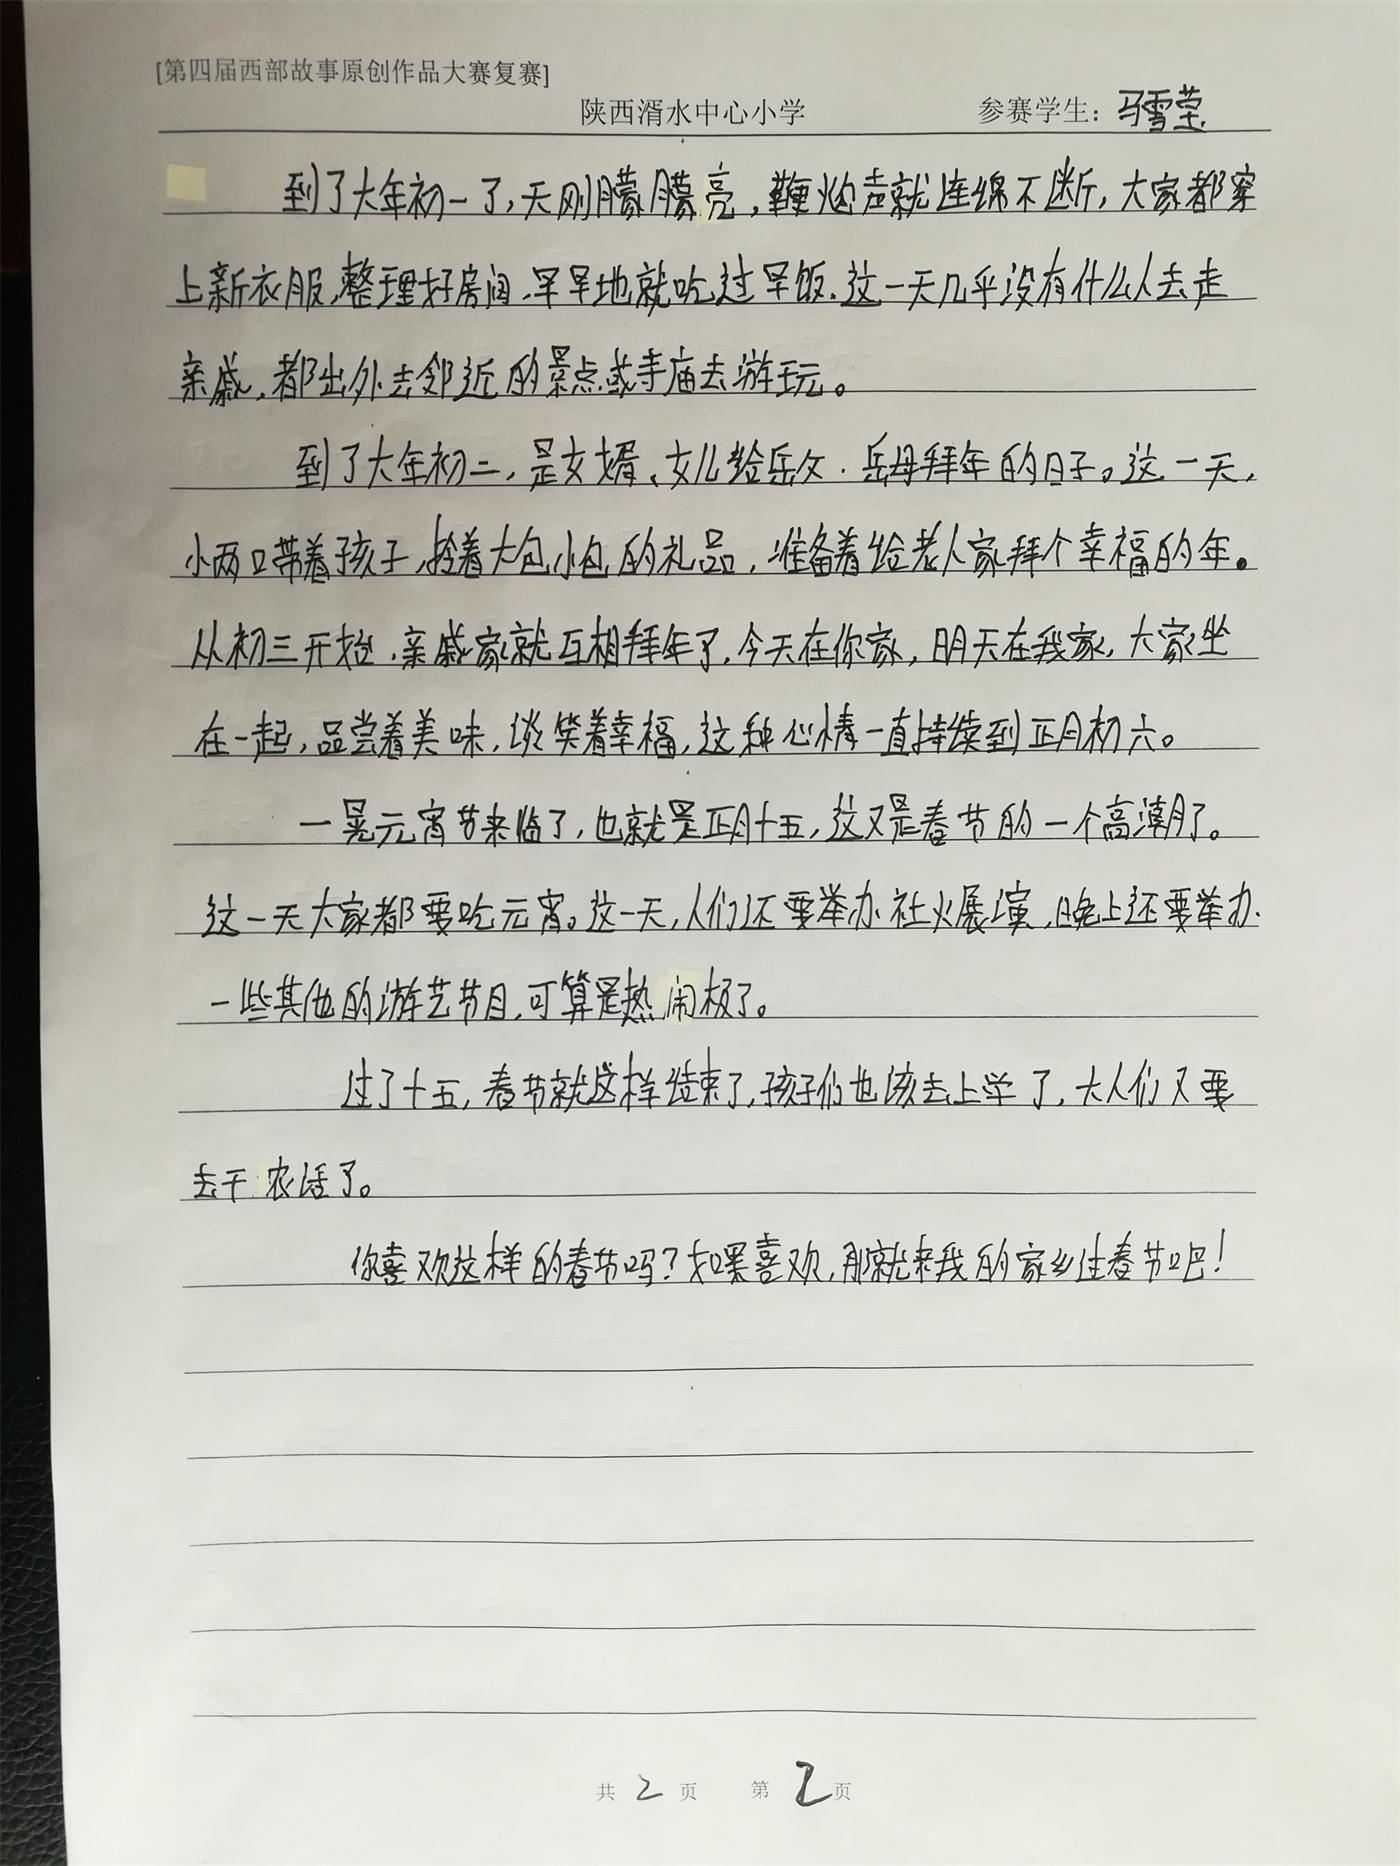 [第四届西部故事原创作品大赛复赛]
陕西湑水中心小学 参赛学生：马雪莹
到了大年初一了，天刚朦朦亮，鞭炮声就连绵不断，大家都穿
上新衣服，整理好房间，早早地就吃过早饭，这一天几乎没有什么人去走
亲戚，都出外去邻近的景点或寺庙去游玩。
到了大年初二，是女婿、女儿给岳父、岳母拜年的日子。这一天，
小两口带着孩子，拎着大包小包的礼品，准备着给老人家拜个幸福的年。
从初三开始，亲戚家就互相拜年了，今天在你家，明天在我家，大家坐
在一起，品尝着美味，谈笑着幸福，这种心情一直持续到正月初六。
一晃元宵节来临了，也就是正月十五，这又是春节的一个高潮了。
这一天大家都要吃元宵。这一天，人们还要举办社火展演，晚上还要举办
一些其他的游艺节目，可算是热闹极了。
过了十五，春节就这样结束了，孩子们也该去上学了，大人们又要
去干农活了。
你喜欢这样的春节吗？如果喜欢，那就来我的家乡过春节吧！
共 2 页 第 2 页